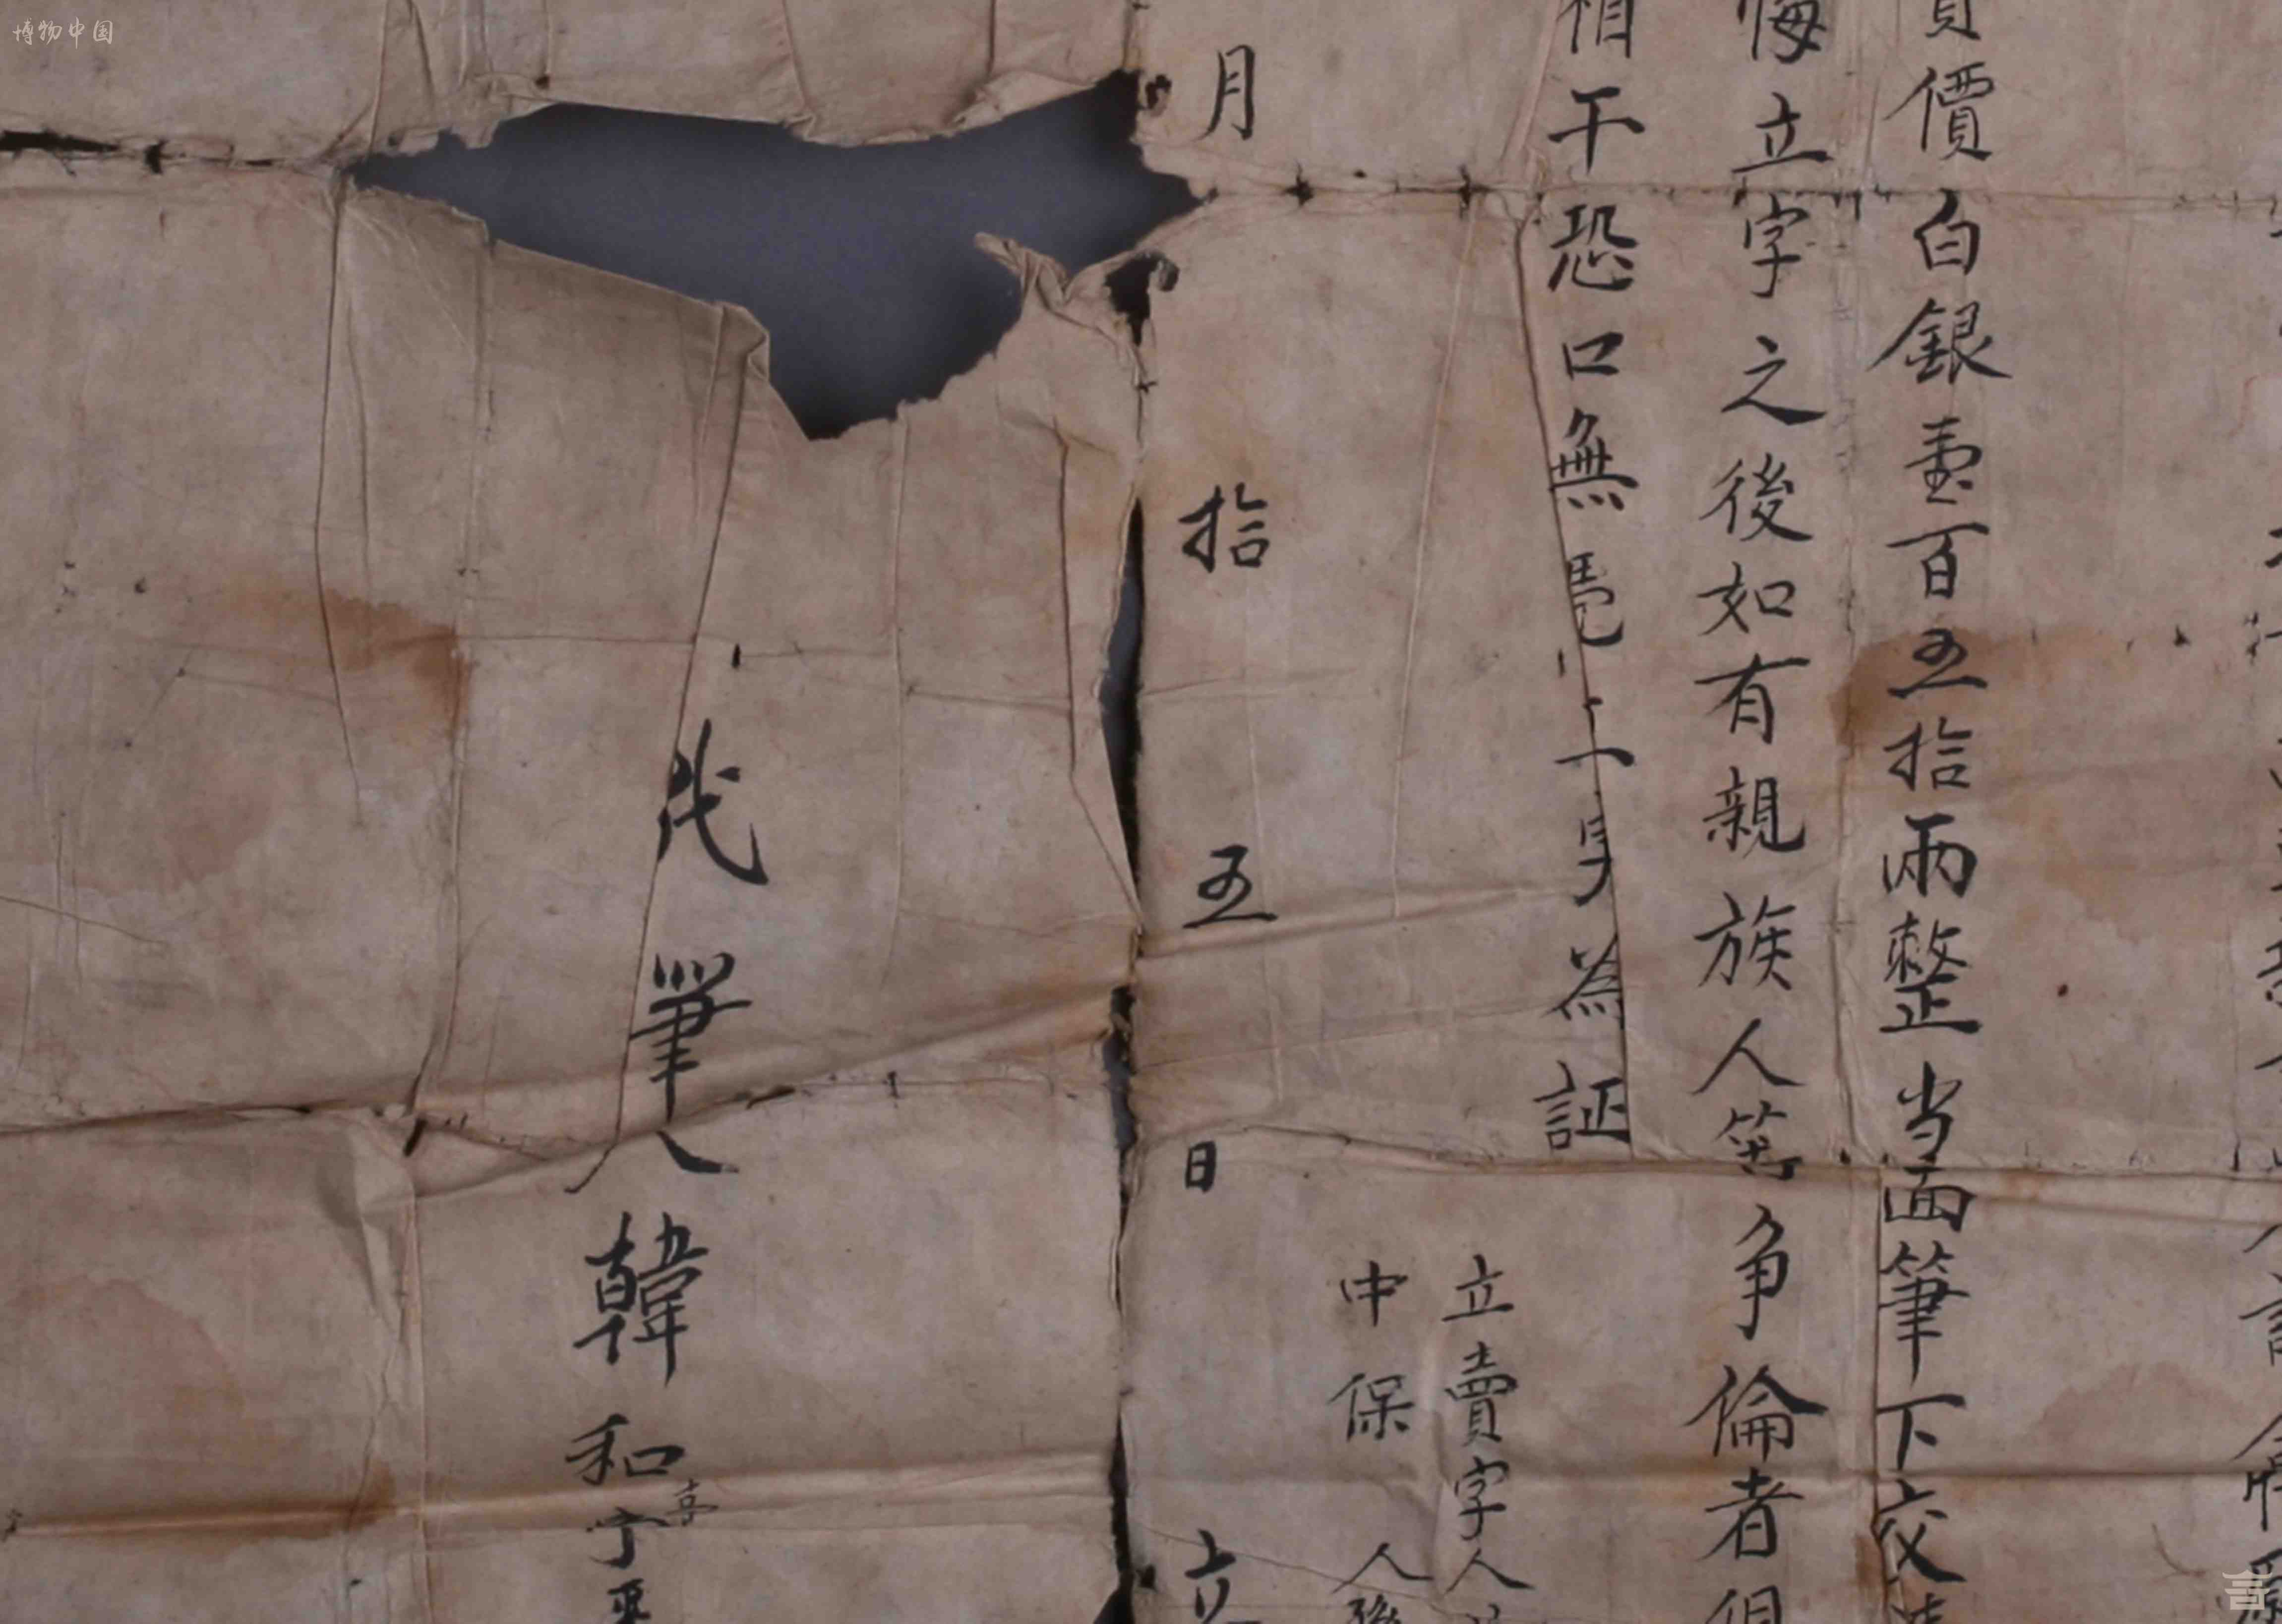 價白銀壹百五拾兩整当面筆下交
悔立字之後如有親族人等争倫者
相干恐口無凴立字為証
立賣字人
中保人
月拾五日立
代筆人韓和
喜
博物中国